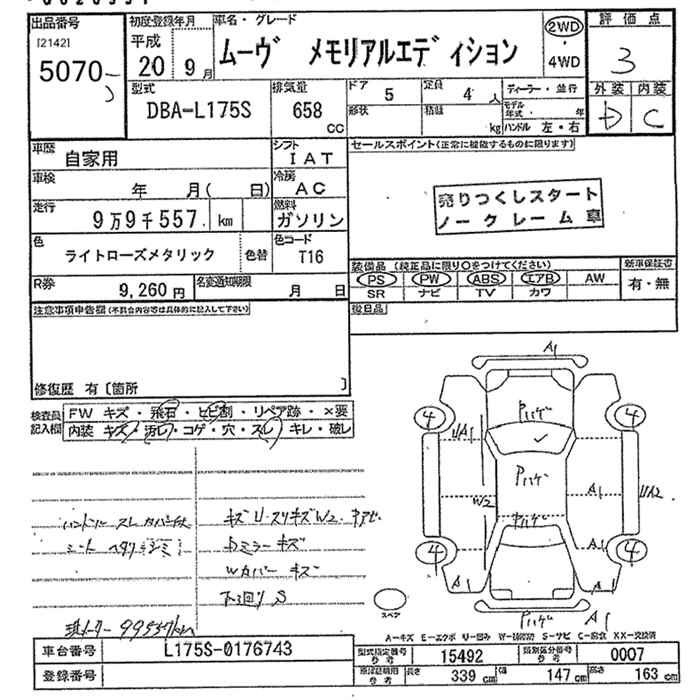 出品番号
[2142]
5070
初度登録年月
平成
20 9月
車名・グレード
ムーヴ メモリアルエディション
2WD
・
4WD
評価点
3
外装 内装
D C
型式
DBA-L175S
排気量
658
CC
ドア
5
定員
4人
形状
積載
kg
ディーラー・並行
モデル年式 年
ハンドル 左・右
車歴
自家用
シフト
IAT
車検
年 月( 日)
冷房
AC
走行
9万9千557 km
燃料
ガソリン
色
ライトローズメタリック
色替
色コード
T16
R券
9,260円
名変通知期限
月 日
セールスポイント(正常に機能するものに限ります)
売りつくしスタート
ノークレーム車
装備品 (純正品に限り○をつけてください)
新車保証書
PS PW ABS エアB AW
有・無
SR ナビ TV カワ
後日品
注意事項申告欄(不具合内容等は具体的に記入して下さい)
修復歴 有〔箇所 〕
検査員
記入欄
FW キズ・飛石・ヒビ割・リペア跡・×要
内装 キズ・汚レ・コゲ・穴・スレ・キレ・破レ
ハンドル スレ
シート ヘタリ シミ
キズ U・スリキズ W2・
Dミラーキズ
Wカバー キズ
下廻り S
99557km
A1
4
4
Pハゲ
UA1
Pハゲ
A1
UA2
W2
Pハゲ
4
4
A1
A1
Pハゲ
A1
スペア
A-キズ E-エクボ U-凹み W-補修跡 S-サビ C-腐食 XX-交換済
車台番号
L175S-0176743
登録番号
型式指定番号
参考
15492
類別区分番号
参考
0007
車庫証明用
参考
長さ
339 cm
幅
147 cm
高さ
163 cm